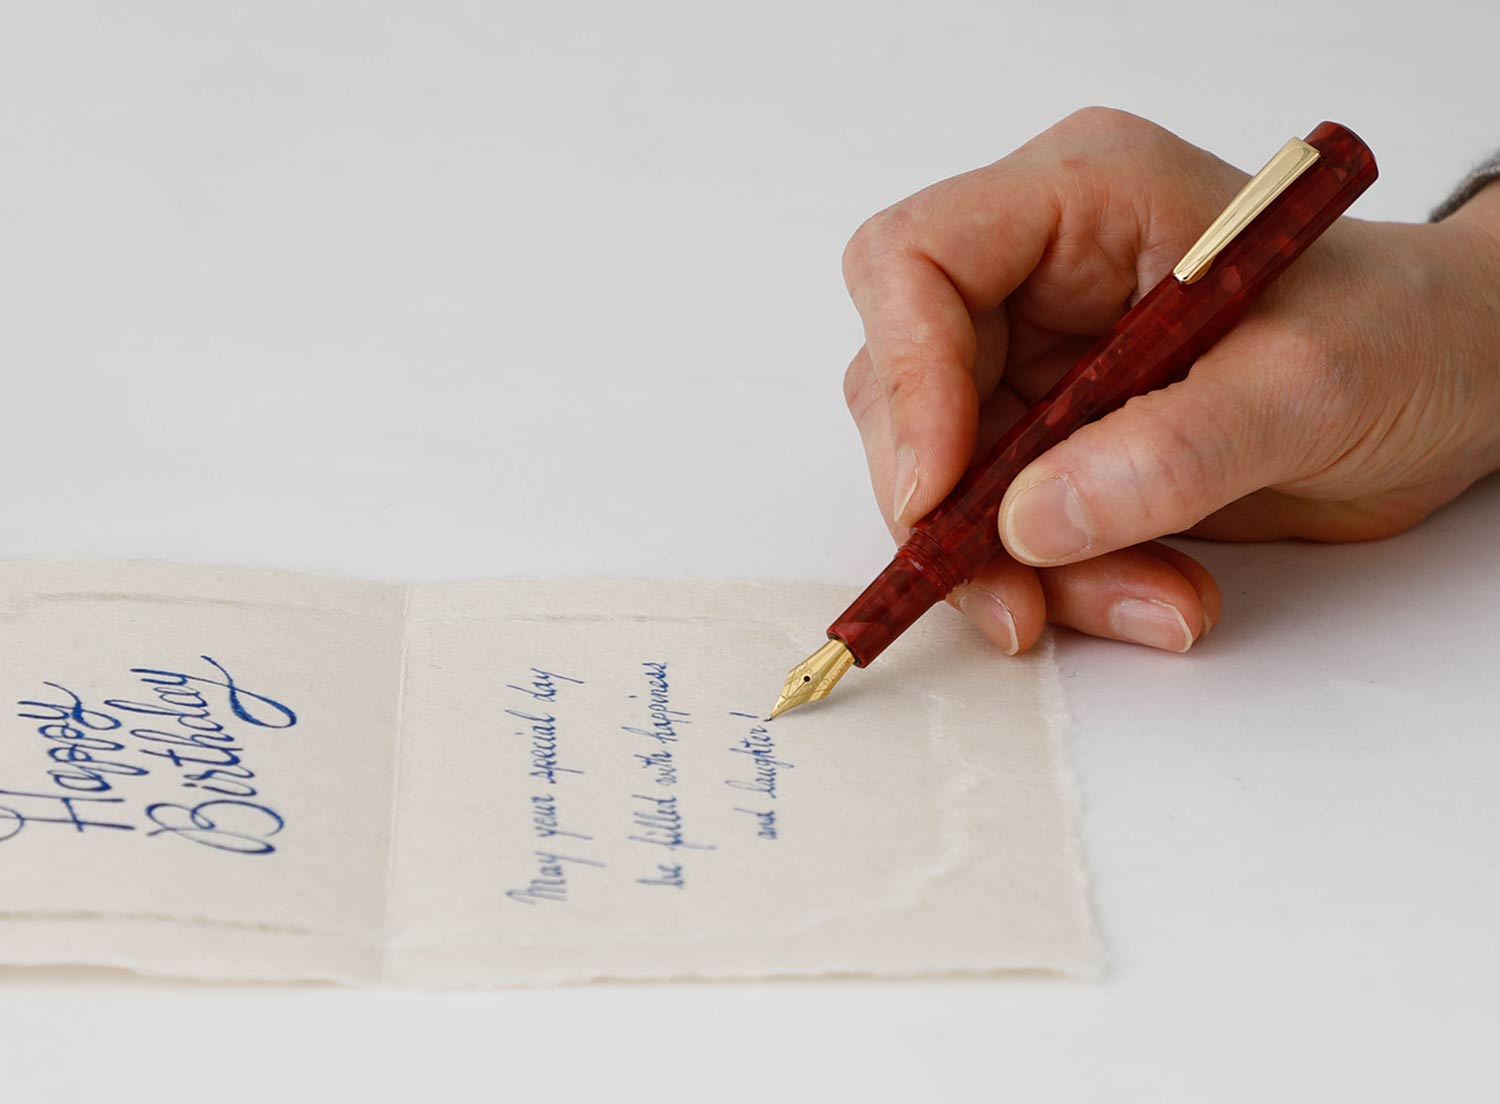 Happy
Birthday
May your special day
be filled with happiness
and laughter!